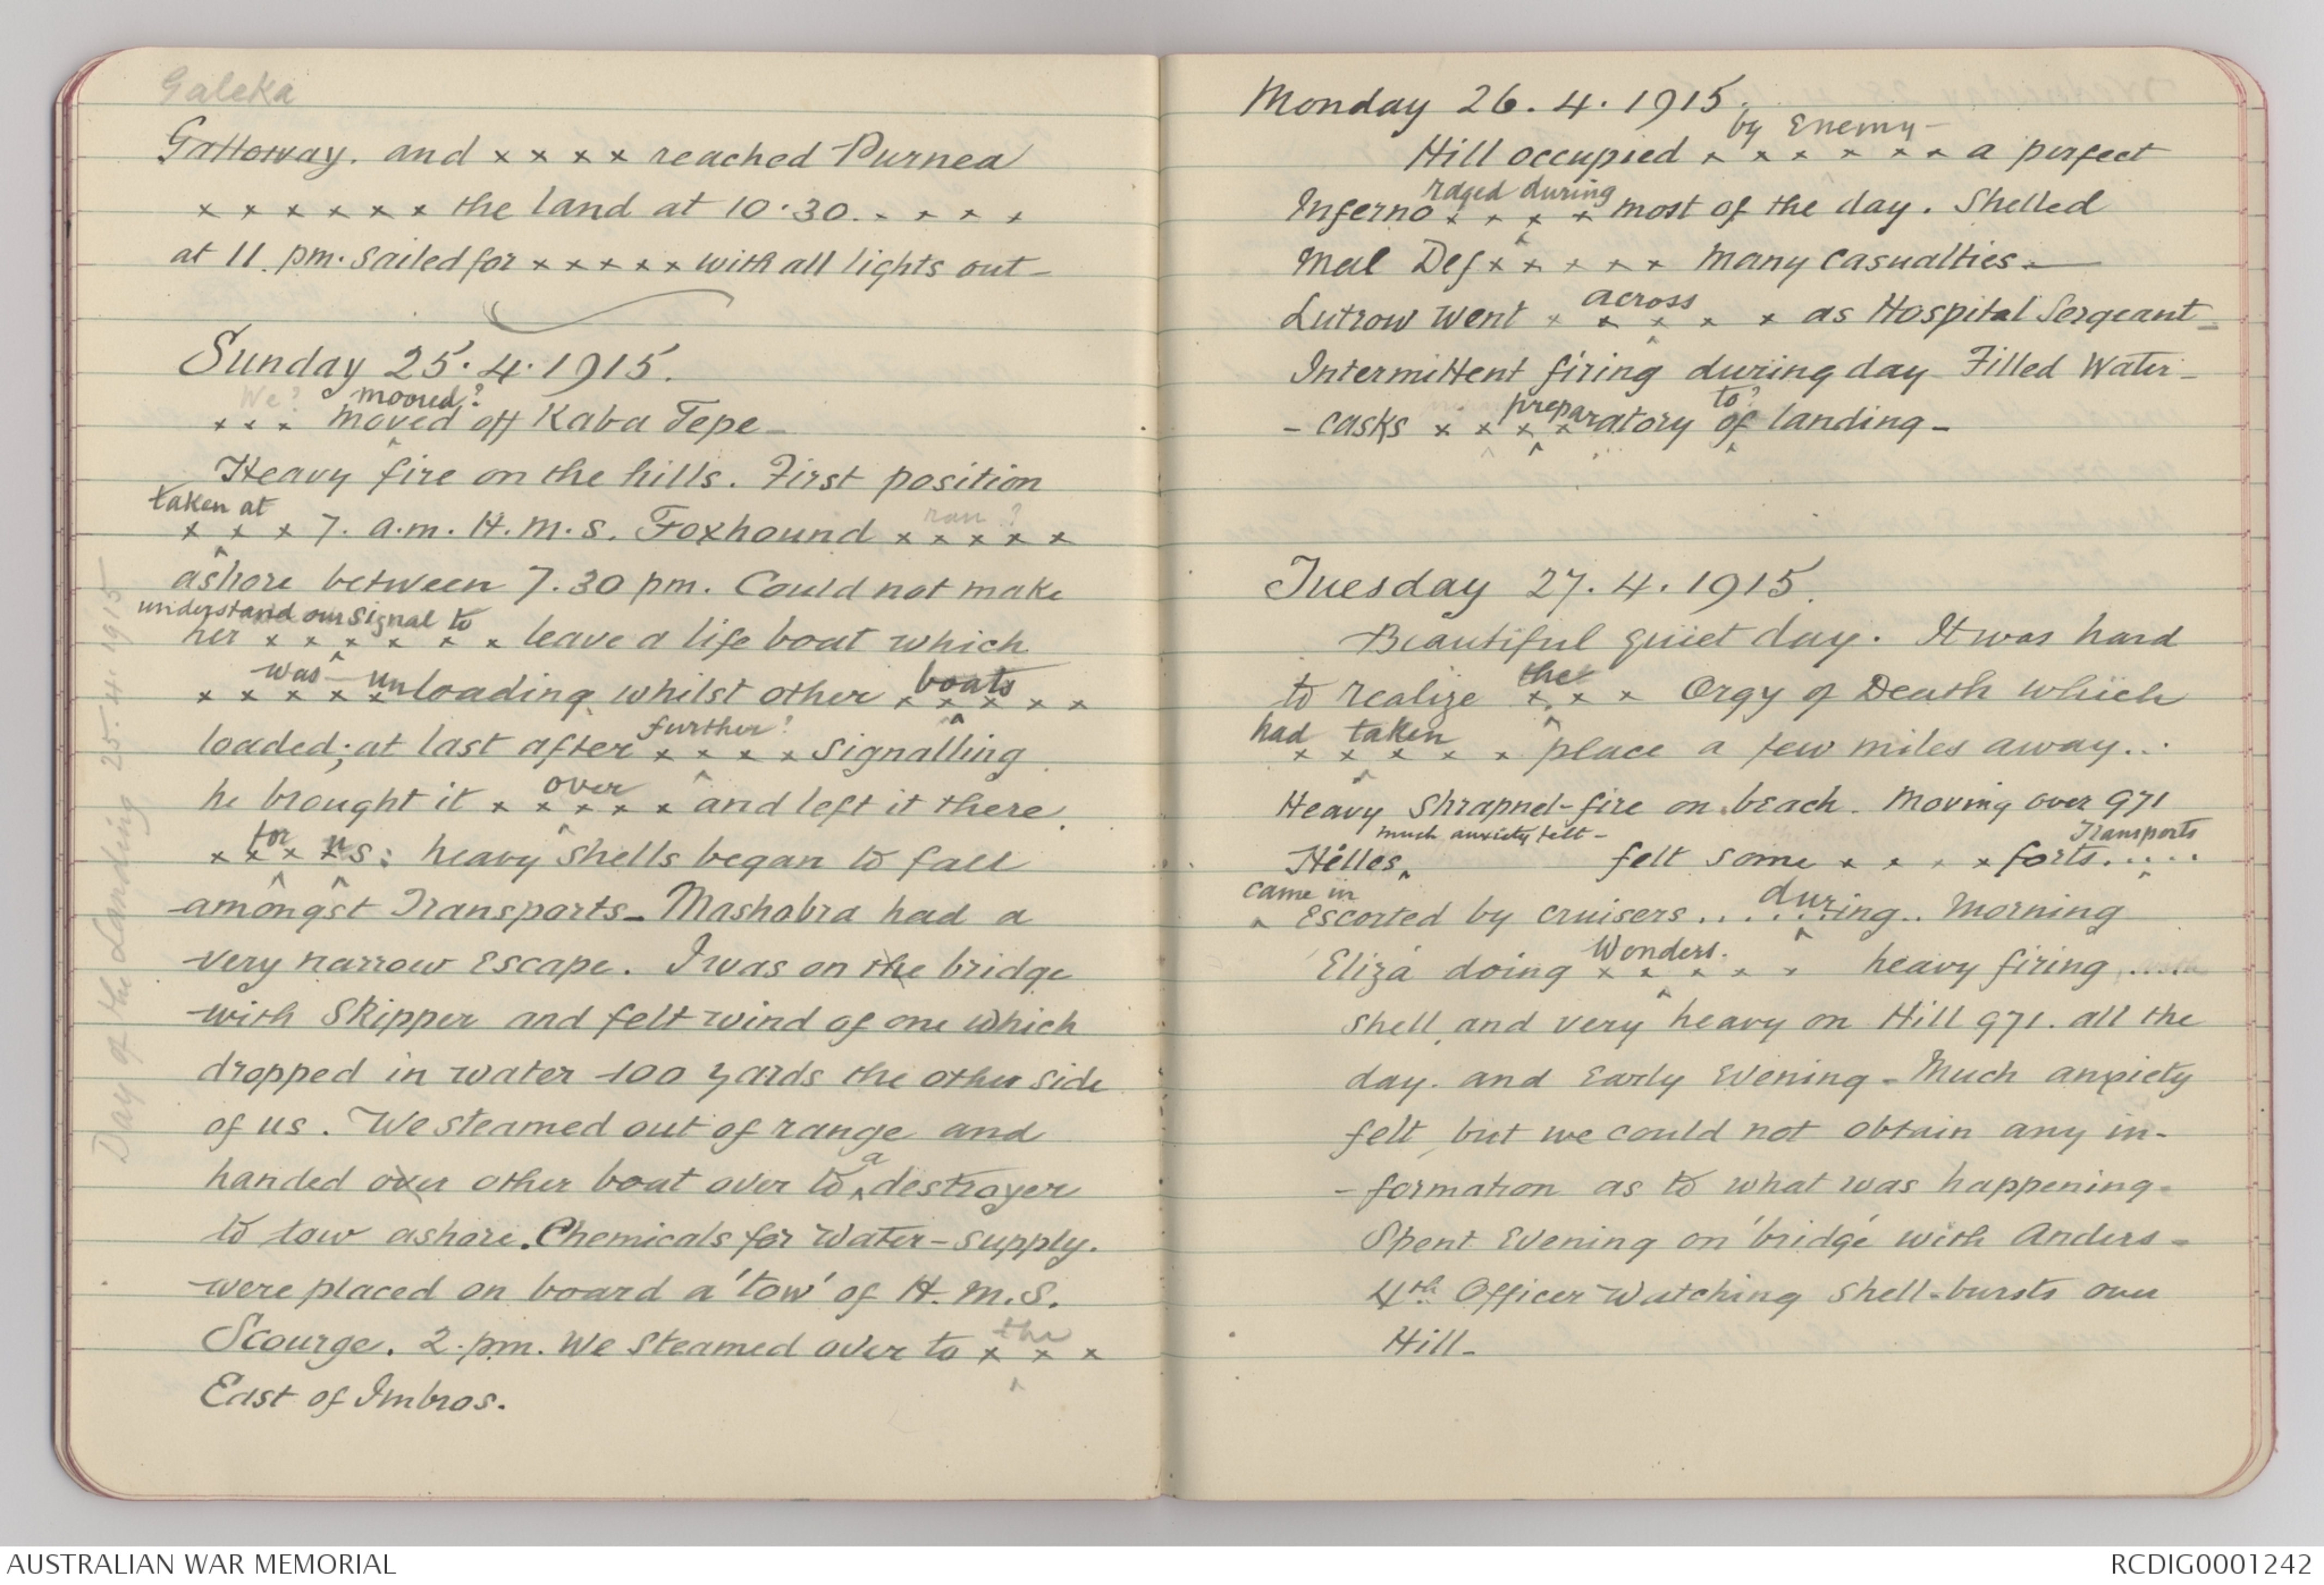 Galeka
Gattorvay. and x x x x reached Purnea
x x x x x x x the land at 10.30. x x x x x
at 11. pm. Sailed for x x x x x with all lights out_
Sunday 25.4.1915.
We? moored?
x x x moved off Kaba Tepe_
Heavy fire on the hills. First position
taken at
x x x 7. a.m. H.M.S. Foxhound x x x x x
ran?
ashore between 7.30 pm. Could not make
understand our signal to
her x x x x x x leave a life boat which
was un boats
x x x x x loading whilst other x x x x x
further?
loaded; at last after x x x x signalling
over
he brought it x x x x x and left it there
for u
x x x x s: heavy shells began to fall
amongst Transports_ Mashobra had a
very narrow escape. I was on the bridge
with Skipper and felt wind of one which
dropped in water 100 yards the other side
of us. We steamed out of range and
a
handed over other boat over to ^ destroyer
to tow ashore. Chemicals for Water-supply.
were placed on board a 'tow' of H.M.S.
the
Scourge. 2.pm. We steamed over to x x x
East of Imbros.
Day of the Landing 25.4.1915
Monday 26.4.1915.
by Enemy-
Hill occupied x x x x x x a perfect
raged during
Inferno x x x x most of the day. Shelled
Mal Def x x x x x Many casualties.
across
Lutrow went x x x x x as Hospital Sergeant_
Intermittent firing during day Filled Water-
preparatory to?
-casks x x x x ratory of landing-
Tuesday 27.4.1915.
Beautiful quiet day. It was hard
the
to realize x x x Orgy of Death which
had taken
x x x x x place a few miles away...
Heavy Shrapnel-fire on beach. Moving over 971
much anxiety felt- Transports
Hélles ^ felt some x x x x forts.....
came in dur
^ Escorted by cruisers......ing.. Morning
Wonders.
Eliza doing x x x x x heavy firing .....
shell, and very heavy on Hill 971. all the
day. and Early Evening_ Much anxiety
felt, but we could not obtain any in-
-formation as to what was happening-
Spent Evening on 'bridge' with Anders-
4th Officer Watching Shell-bursts over
Hill_
AUSTRALIAN WAR MEMORIAL
RCDIG0001242